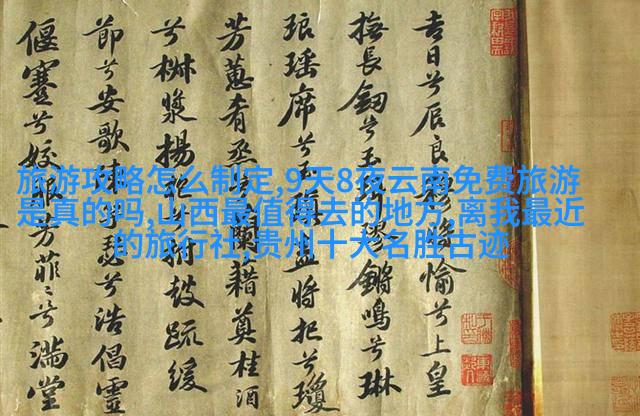 旅游攻略怎么制定,9天8夜云南免费旅游
是真的吗,山西最值得去的地方,离我最近
的旅行社,贵州十大名胜古迹
吉日兮辰良穆將愉兮上皇
撫長劒兮玉珥璆鏘鳴兮琳
琅瑤席兮玉瑱盍將把兮瓊
芳蕙肴烝兮蘭藉奠桂酒
兮椒漿揚枹兮拊鼓疏緩
節兮安歌陳竽瑟兮浩倡靈
偃蹇兮姣服芳菲菲兮滿堂